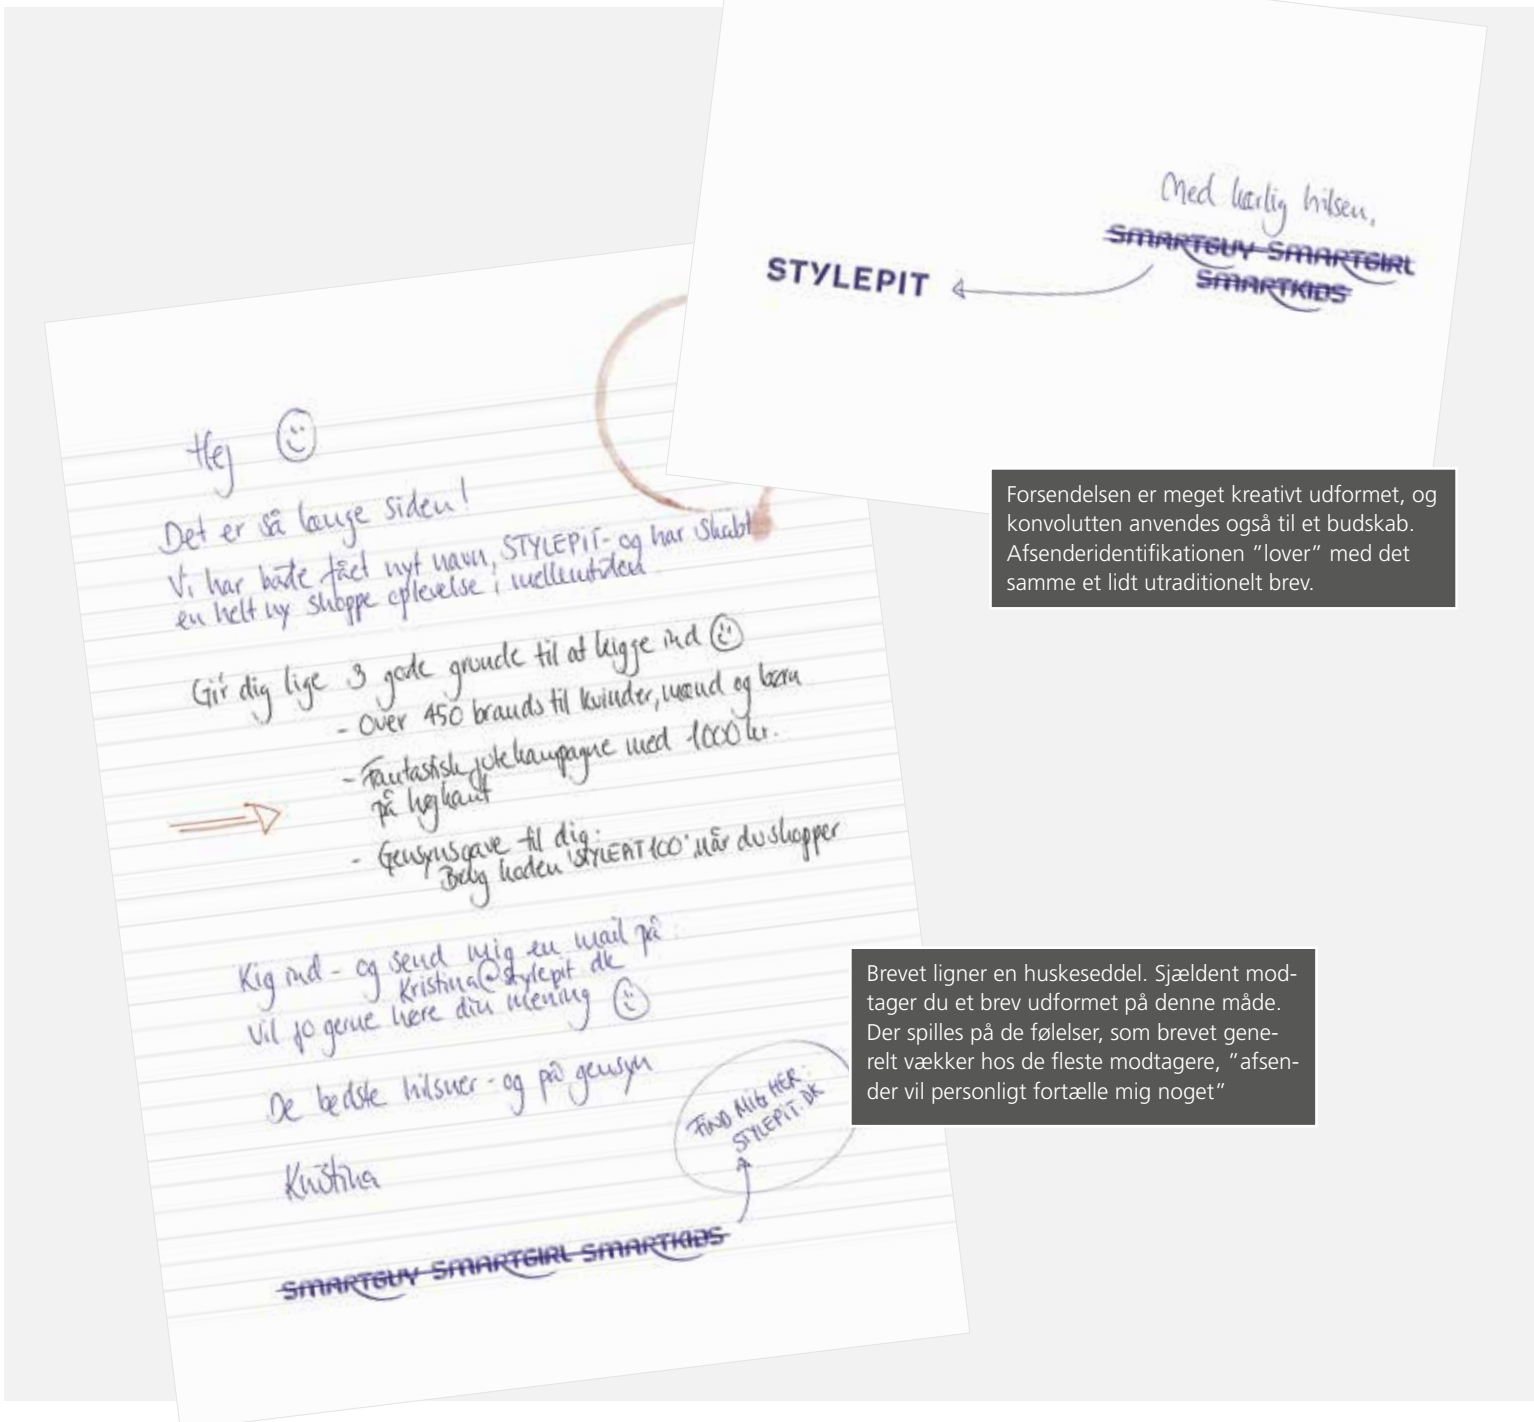 Med kærlig hilsen,
SMARTGUY SMARTGIRL
SMARTKIDS
STYLEPIT
Forsendelsen er meget kreativt udformet, og
konvolutten anvendes også til et budskab.
Afsenderidentifikationen ”lover” med det
samme et lidt utraditionelt brev.
Hej
Det er så længe siden!
Vi har både fået nyt navn, STYLEPIT- og har skabt
en helt ny shoppe oplevelse i mellemtiden
Gi'r dig lige 3 gode grunde til at kigge ind
- Over 450 brands til kvinder, mænd og børn
- Fantastisk julekampagne med 1000 kr.
på højkant
- Gensynsgave til dig:
Brug koden 'STYLEPIT100' når du shopper
Kig ind - og send mig en mail på:
Kristina@stylepit.dk
Vil jo gerne høre din mening
De bedste hilsner - og på gensyn
Kristina
FIND MIG HER:
STYLEPIT.DK
SMARTGUY SMARTGIRL SMARTKIDS
Brevet ligner en huskeseddel. Sjældent mod-
tager du et brev udformet på denne måde.
Der spilles på de følelser, som brevet gene-
relt vækker hos de fleste modtagere, ”afsen-
der vil personligt fortælle mig noget”